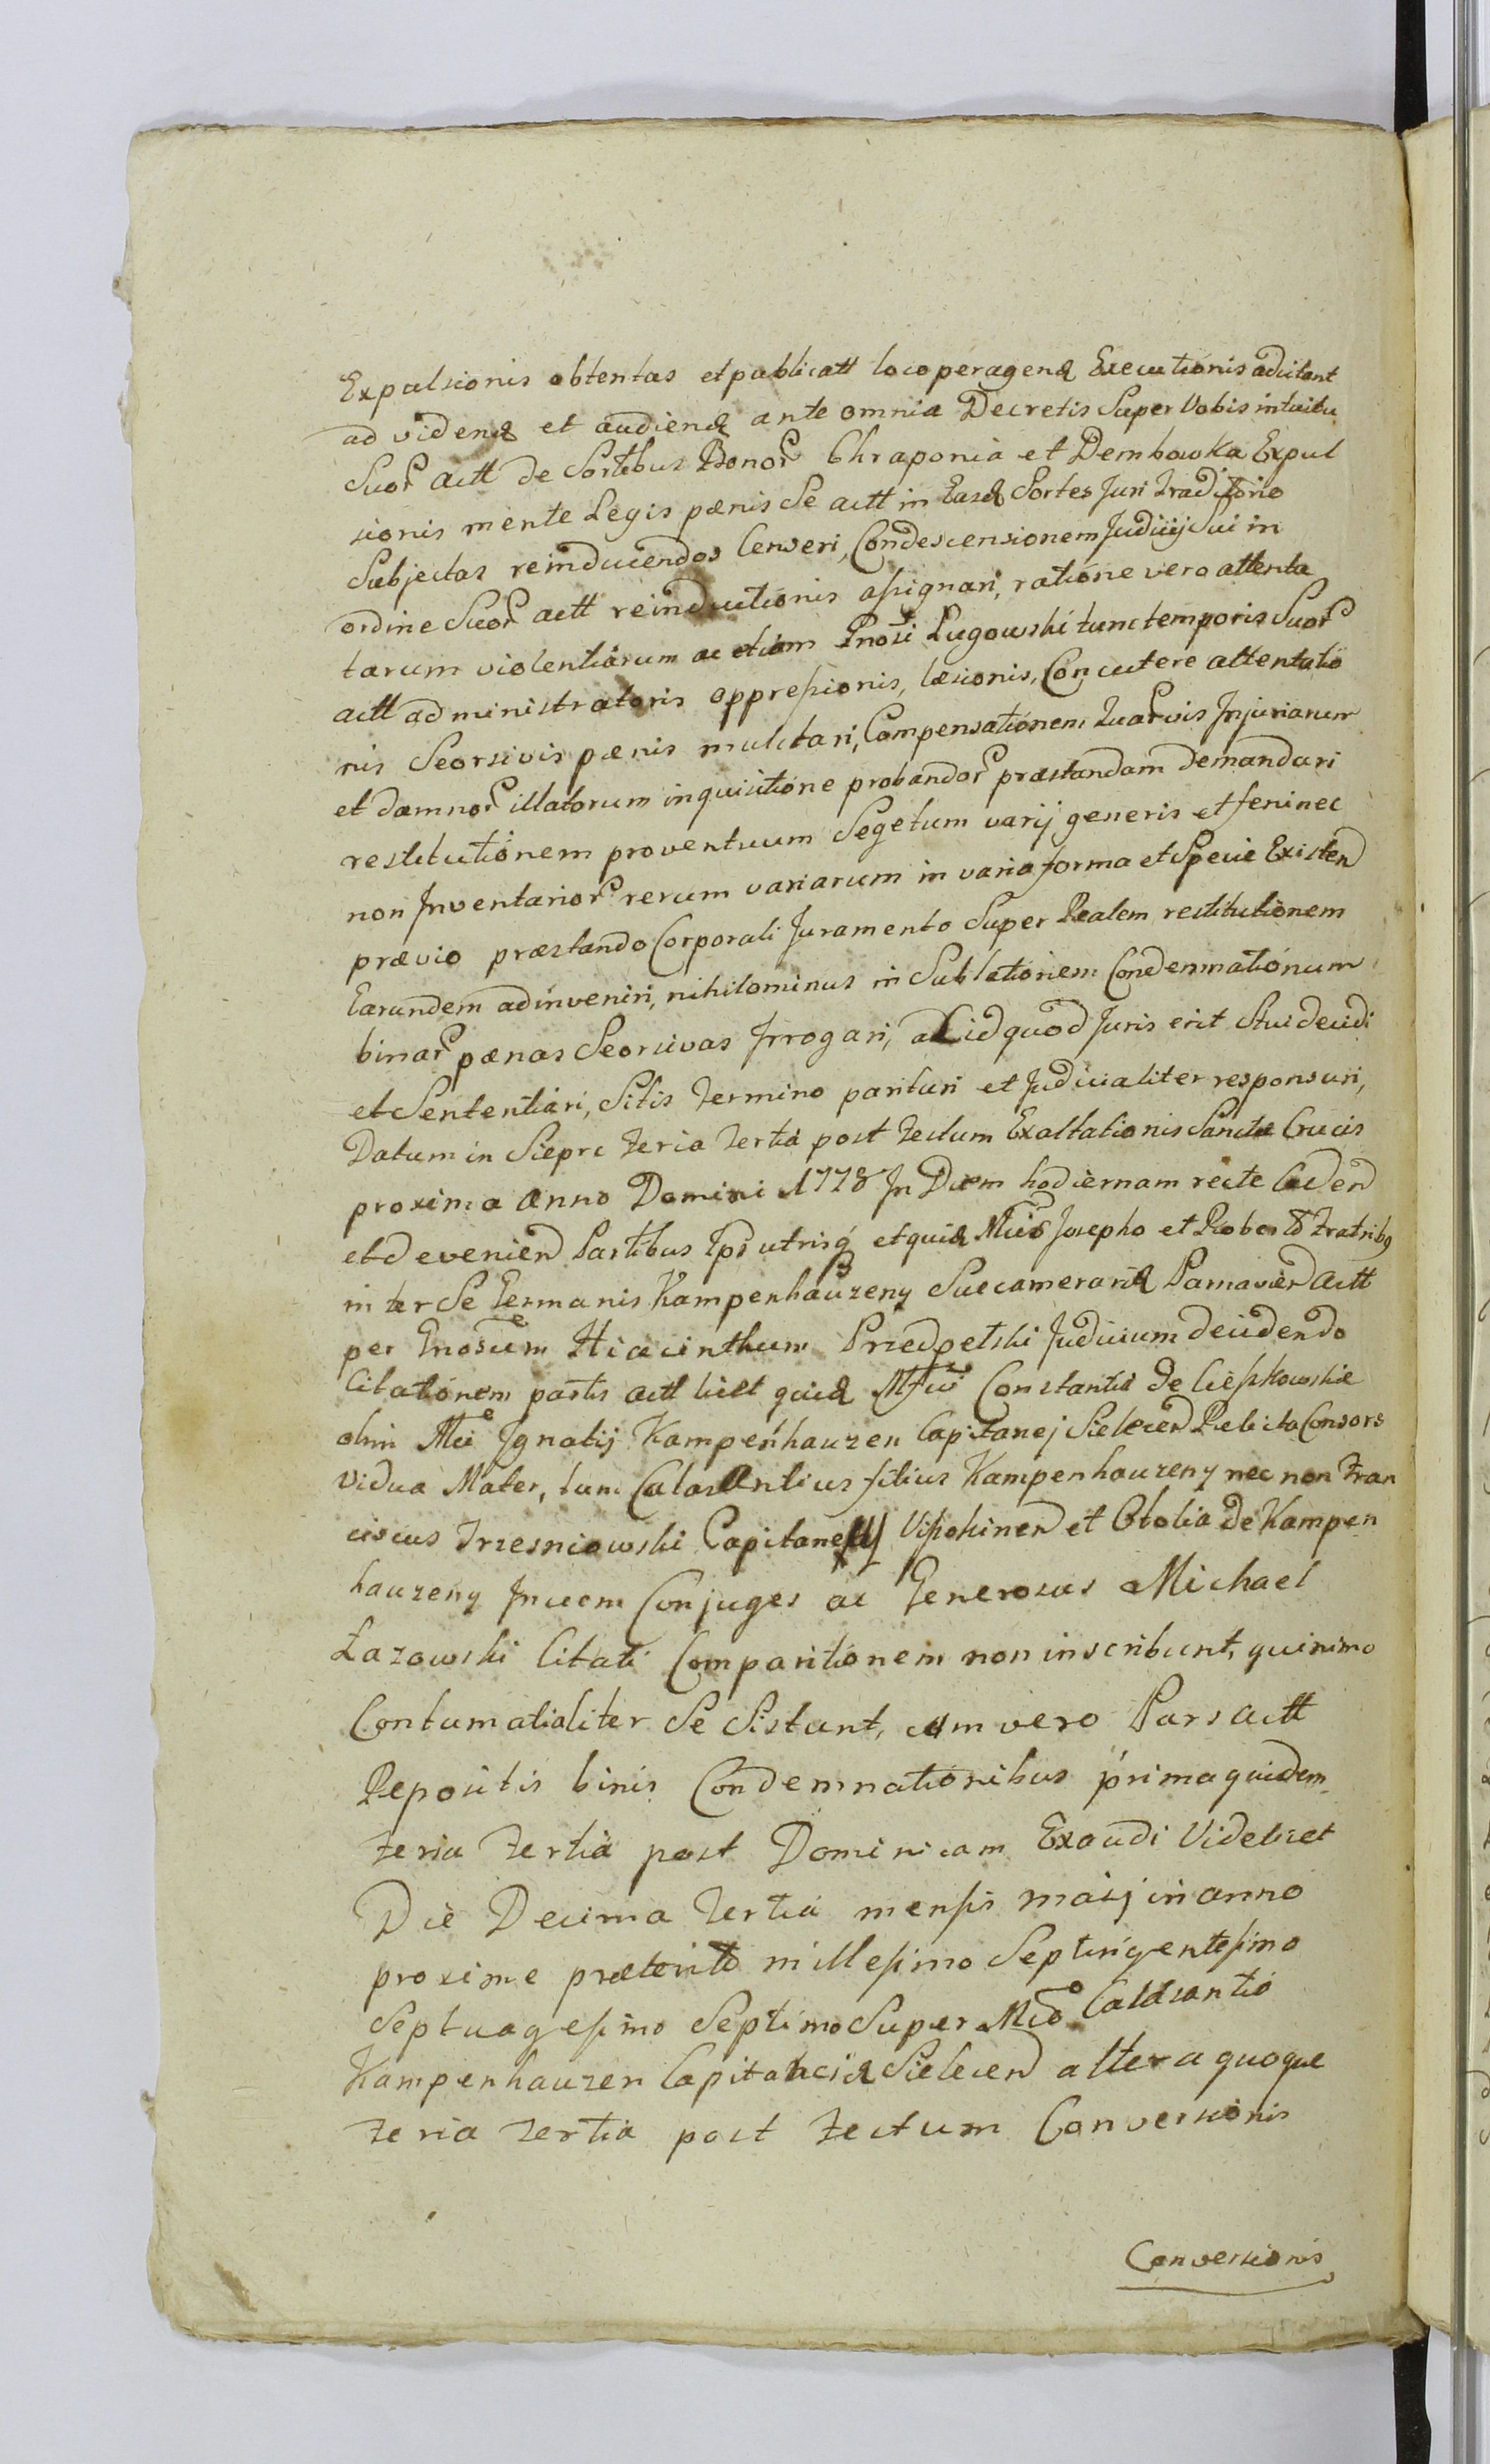 Expulsionis obtentas et publicatt loco peragend Executionis adcitant
ad vidend et audiend ante omnia Decretis Super Vobis intuitu
Suor actt de Sortibus Bonor Chraponia et Dembowka Expul
sionis mente Legis pænis Se actt in Easd Sortes Juri traditorio
Subjectas reinducendos Censeri, Condescensionem Judicij Sui in
ordine Suor actt reinductionis assignari, ratione vero attenta
tarum violentiarum ac etiam Gnosi Lugowski tunc temporis Suor
actt administratoris oppressionis, læsionis, Concutere attentatio
nis Seorsivis pænis mulctari, Compensationem quarvis Injuriarum
et damnor illatorum inquisitione probandor præstandam demandari
restitutionem proventuum Segetum varij generis et feni nec
non Inventarior rerum variarum in varia forma et Specie Existen
prævio præstando Corporali Juramento Super Realem restitutionem
Earundem adinveniri, nihilominus in Sublationem Condemnationum
binar pænas Seorsivas Irrogari, ac id quod Juris erit Stui decidi
et Sententiari, Sitis termino parituri et Judicialiter responsuri,
Datum in Sieprc feria tertia post festum Exaltationis Sanctæ Crucis
proxima Anno Domini 1778 In Diem hodiernam recte Caden
et devenien Partibus Ipsi utrisq et quid Mcis Josepho et Roberto Fratribq
inter Se Germanis Kampenhauzeny Succamerarid Parnavien Actt
per Gnosum Hiacinthum Przedpetski Judicium decidendo
Citationem partis actt licet quid Mfca Constantia de Ciepkowskie
olim Mci Ignatij Kampenhauzen Capitanej Sielecen Relicta Consors
Vidua Mater, tum Calasantius filius Kampenhauzeny nec non Fran
ciscus Trzesniowski Capitane Vissokinen et Otolia de Kampen
hauzeny Invicem Conjuges ac Generosus Michael
Łazowski Citati Comparitionem non inscribunt, quinimo
Contumatialiter Se Sistunt, cum vero Pars actt
Repositis binis Condemnationibus prima quidem
feria tertia post Dominicam Exaudi Videlicet
Die Decima tertia mensis maij in anno
proxime præterito millesimo Septingentesimo
Septuagesimo Septimo Super Mco Calasantio
Kampenhauzen Capitaneid Sielecen altera quoque
feria tertia post festum Conversionis
Conversionis